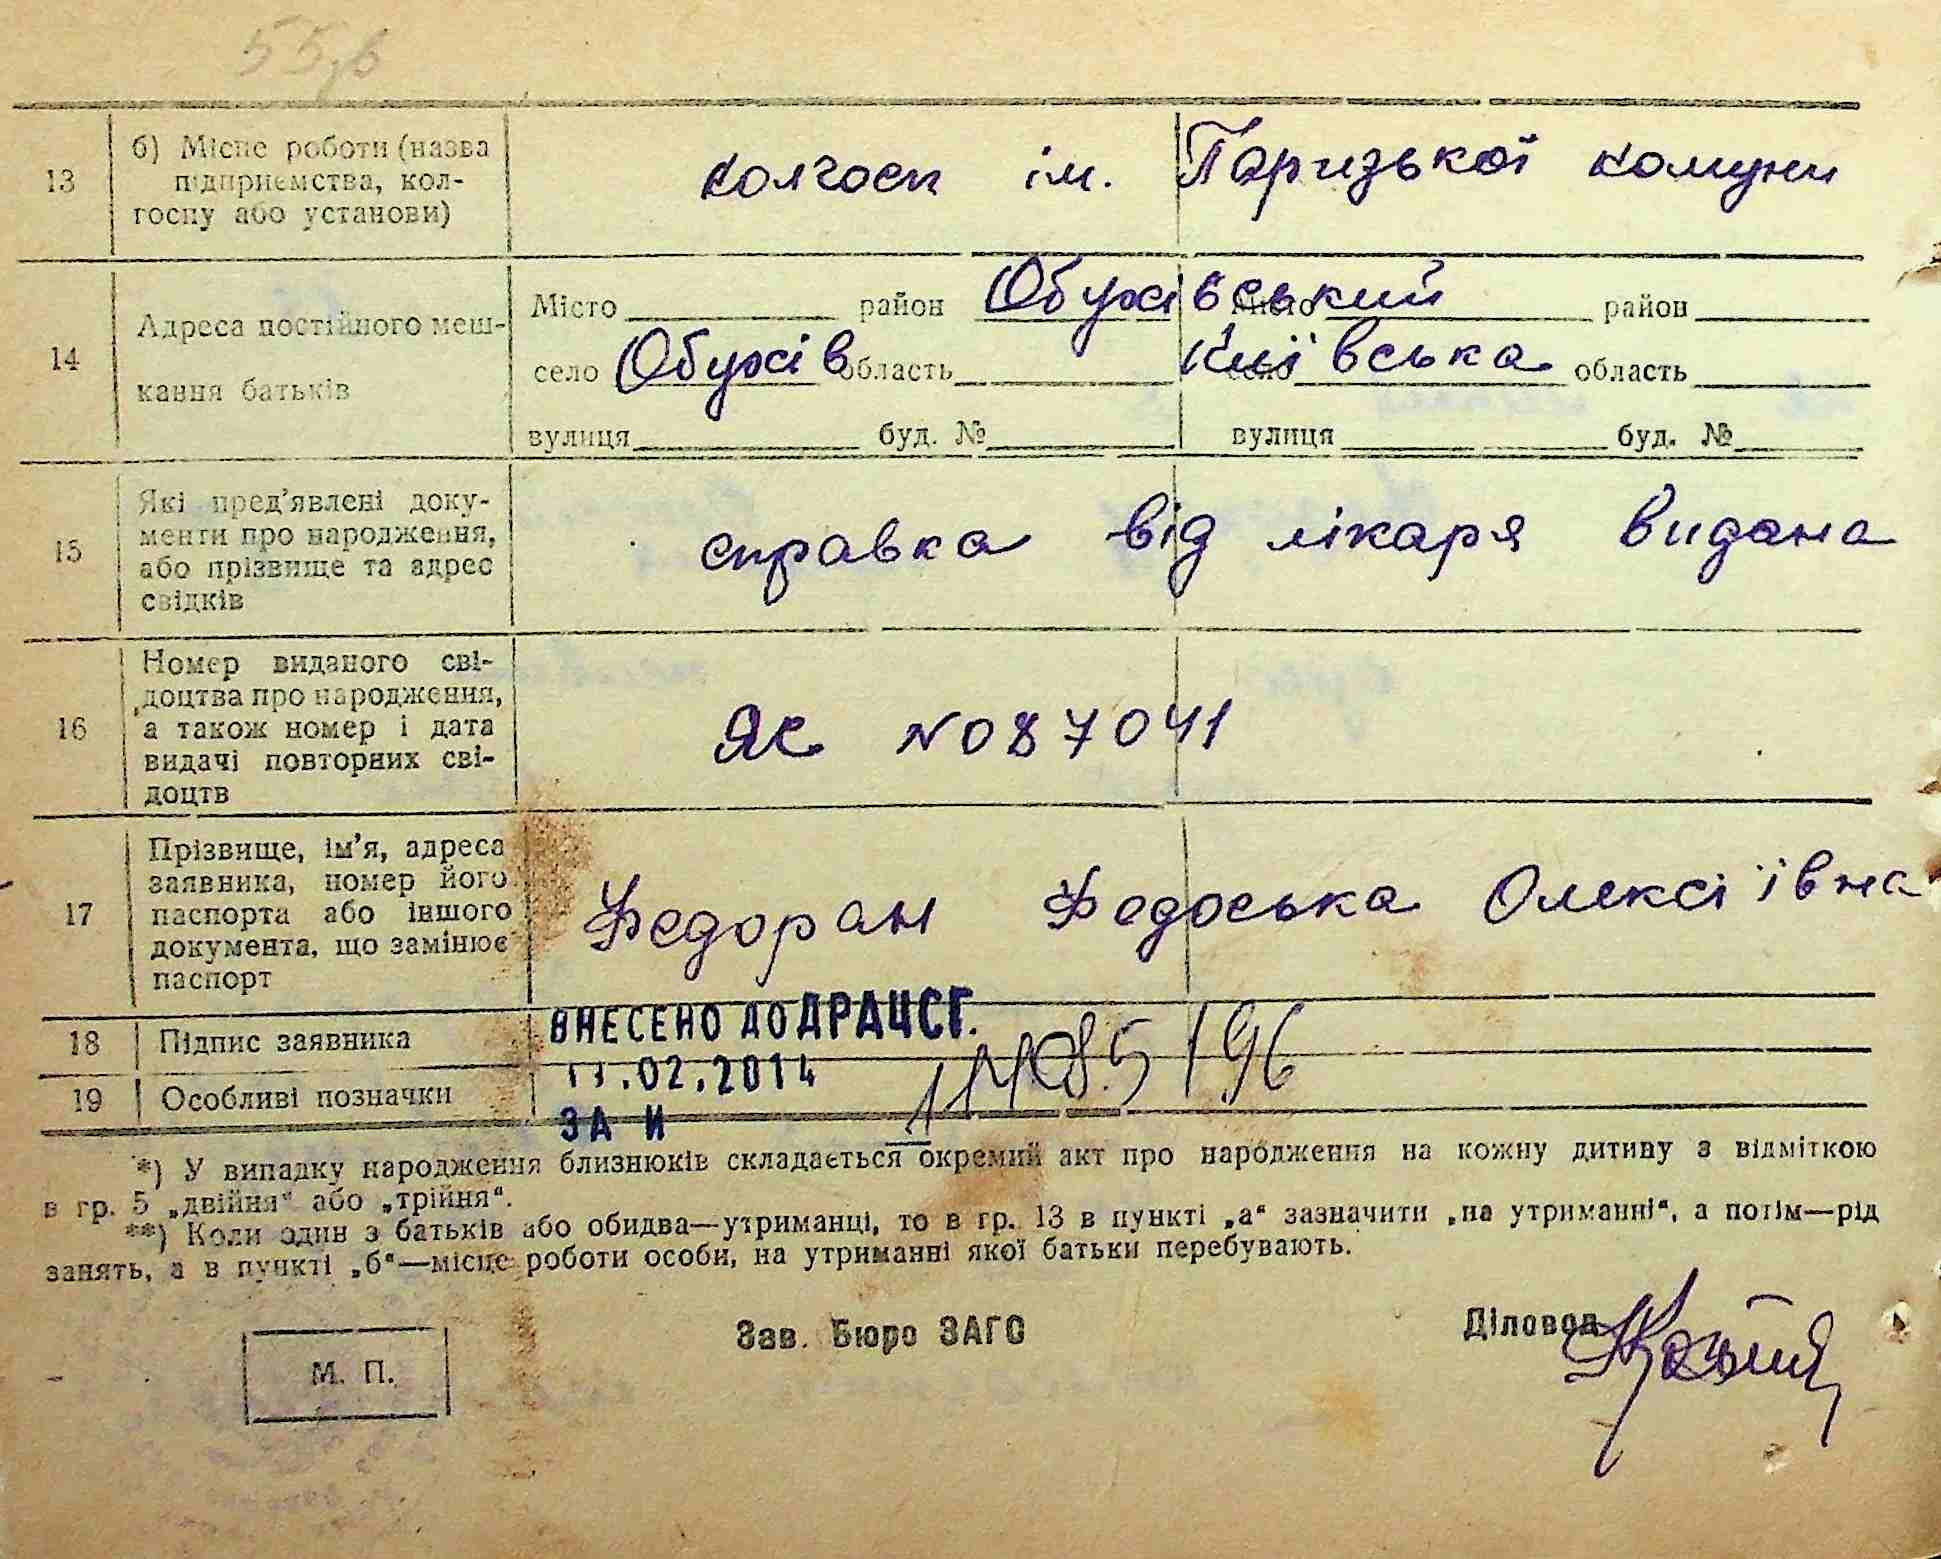 55,в
13 б) Місце роботи (назва підприємства, колгоспу або установи) колгосп ім. Паризької комуни
14 Адреса постійного мешкання батьків
Місто район Обухівський Місто район
село Обухів область Київська село область
вулиця буд. № вулиця буд. №
15 Які пред'явлені документи про народження, або прізвище та адрес свідків справка від лікаря видана
16 Номер виданого свідоцтва про народження, а також номер і дата видачі повторних свідоцтв ЯК N087041
17 Прізвище, ім'я, адреса заявника, номер його паспорта або іншого документа, що замінює паспорт Федоран Федоська Олексіївна
18 Підпис заявника ВНЕСЕНО ДО ДРАЦСГ.
11.02.2014
19 Особливі позначки
ЗА И
*) У випадку народження близнюків складається окремий акт про народження на кожну дитину з відміткою
в гр. 5 „двійня“ або „трійня“.
**) Коли один з батьків або обидва—утриманці, то в гр. 13 в пункті „а“ зазначити „на утриманні“, а потім—рід
занять, а в пункті „б“—місце роботи особи, на утриманні якої батьки перебувають.
Зав. Бюро ЗАГС Діловод
М. П.